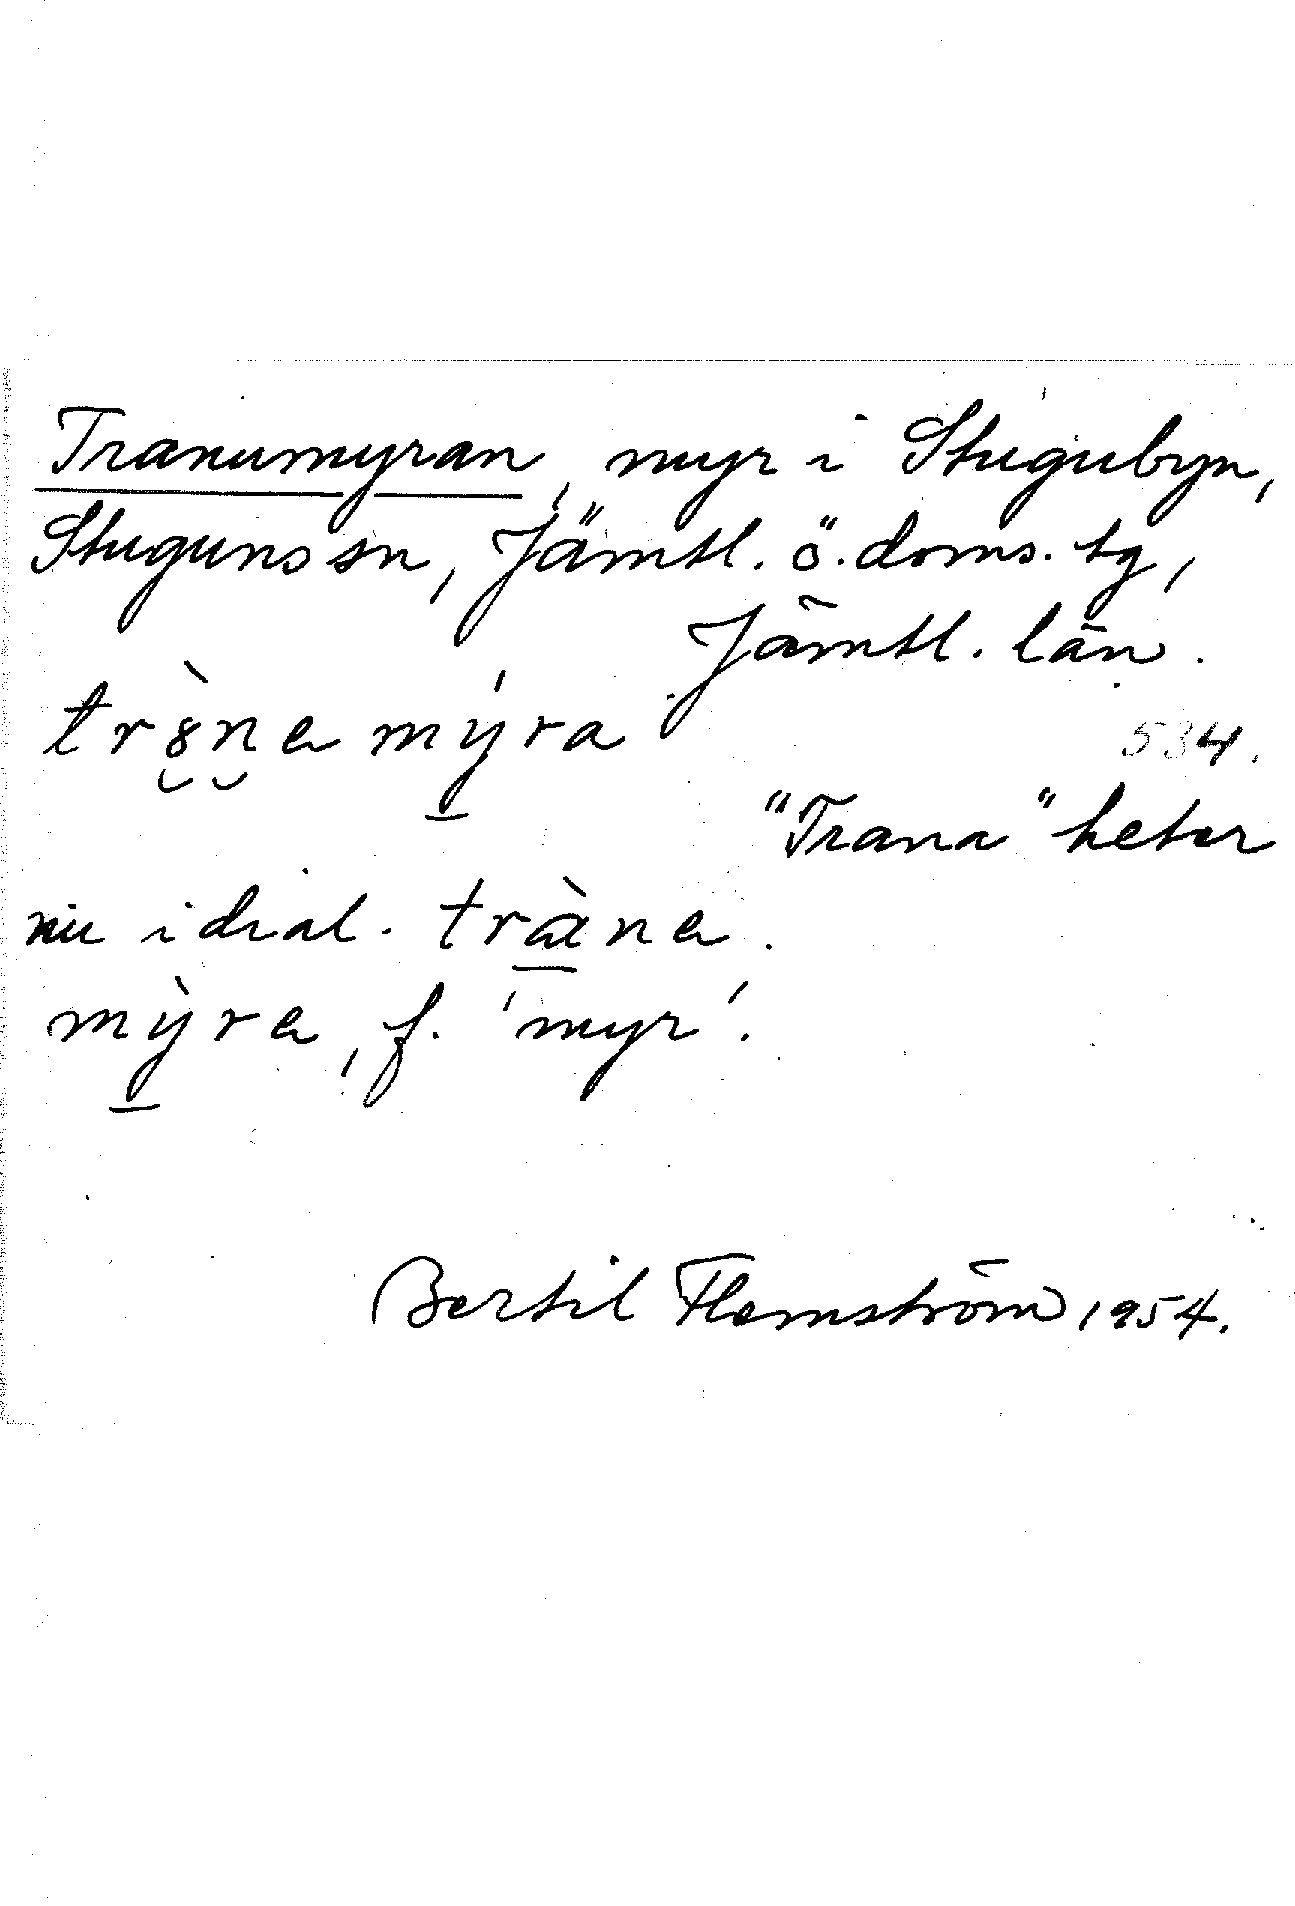 Tranumyran, myr i Stugubyn,
Stuguns sn, Jämtl. ö. doms. tg,
Jämtl. län.
mýra
534.
"Trana" heter
nu i dial. tràne.
mỳra, f. 'myr'.
Bertil Flemström 1954.